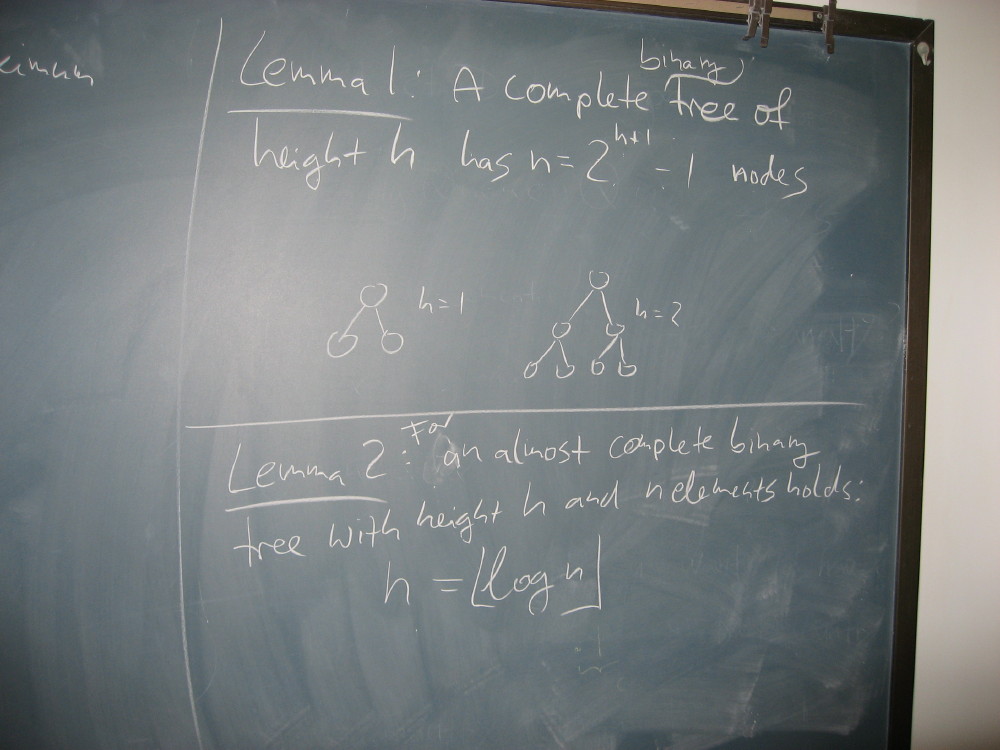 Lemma 1: A complete binary tree of
height h has n = 2^{h+1} - 1 nodes
h = 1
h = 2
Lemma 2: For an almost complete binary
tree with height h and n elements holds:
h = ⌊log n⌋